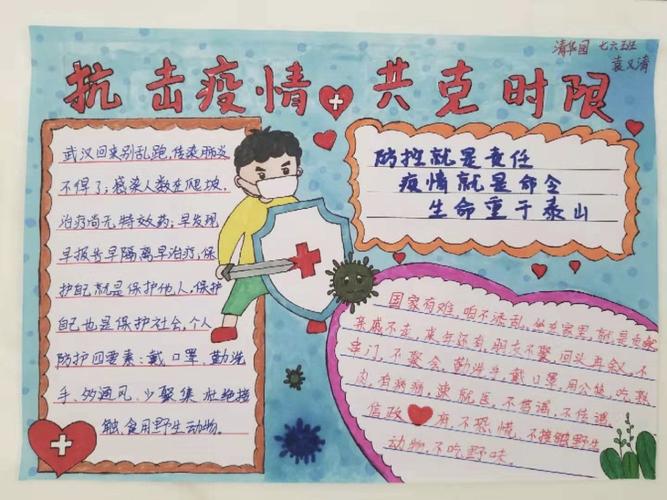 清华园 七六班
袁义清
抗击疫情 共克时限
武汉回来别乱跑,传染肺炎
不得了;感染人数在爬坡,
治疗尚无特效药;早发现
早报告早隔离早治疗,保
护自己就是保护他人,保护
自己也是保护社会,个人
防护四要素:戴口罩、勤洗
手、多通风、少聚集 杜绝接
触、食用野生动物。
防控就是责任
疫情就是命令
生命重于泰山
国家有难,咱不添乱,坐在家里,就是贡献
亲戚不走,来年还有,朋友不聚,回头再会,不
串门,不聚会,勤洗手,戴口罩,用公筷,吃熟
肉,有病情,速就医,不信谣,
信政府,不恐慌,不接触野生
动物,不吃野味。